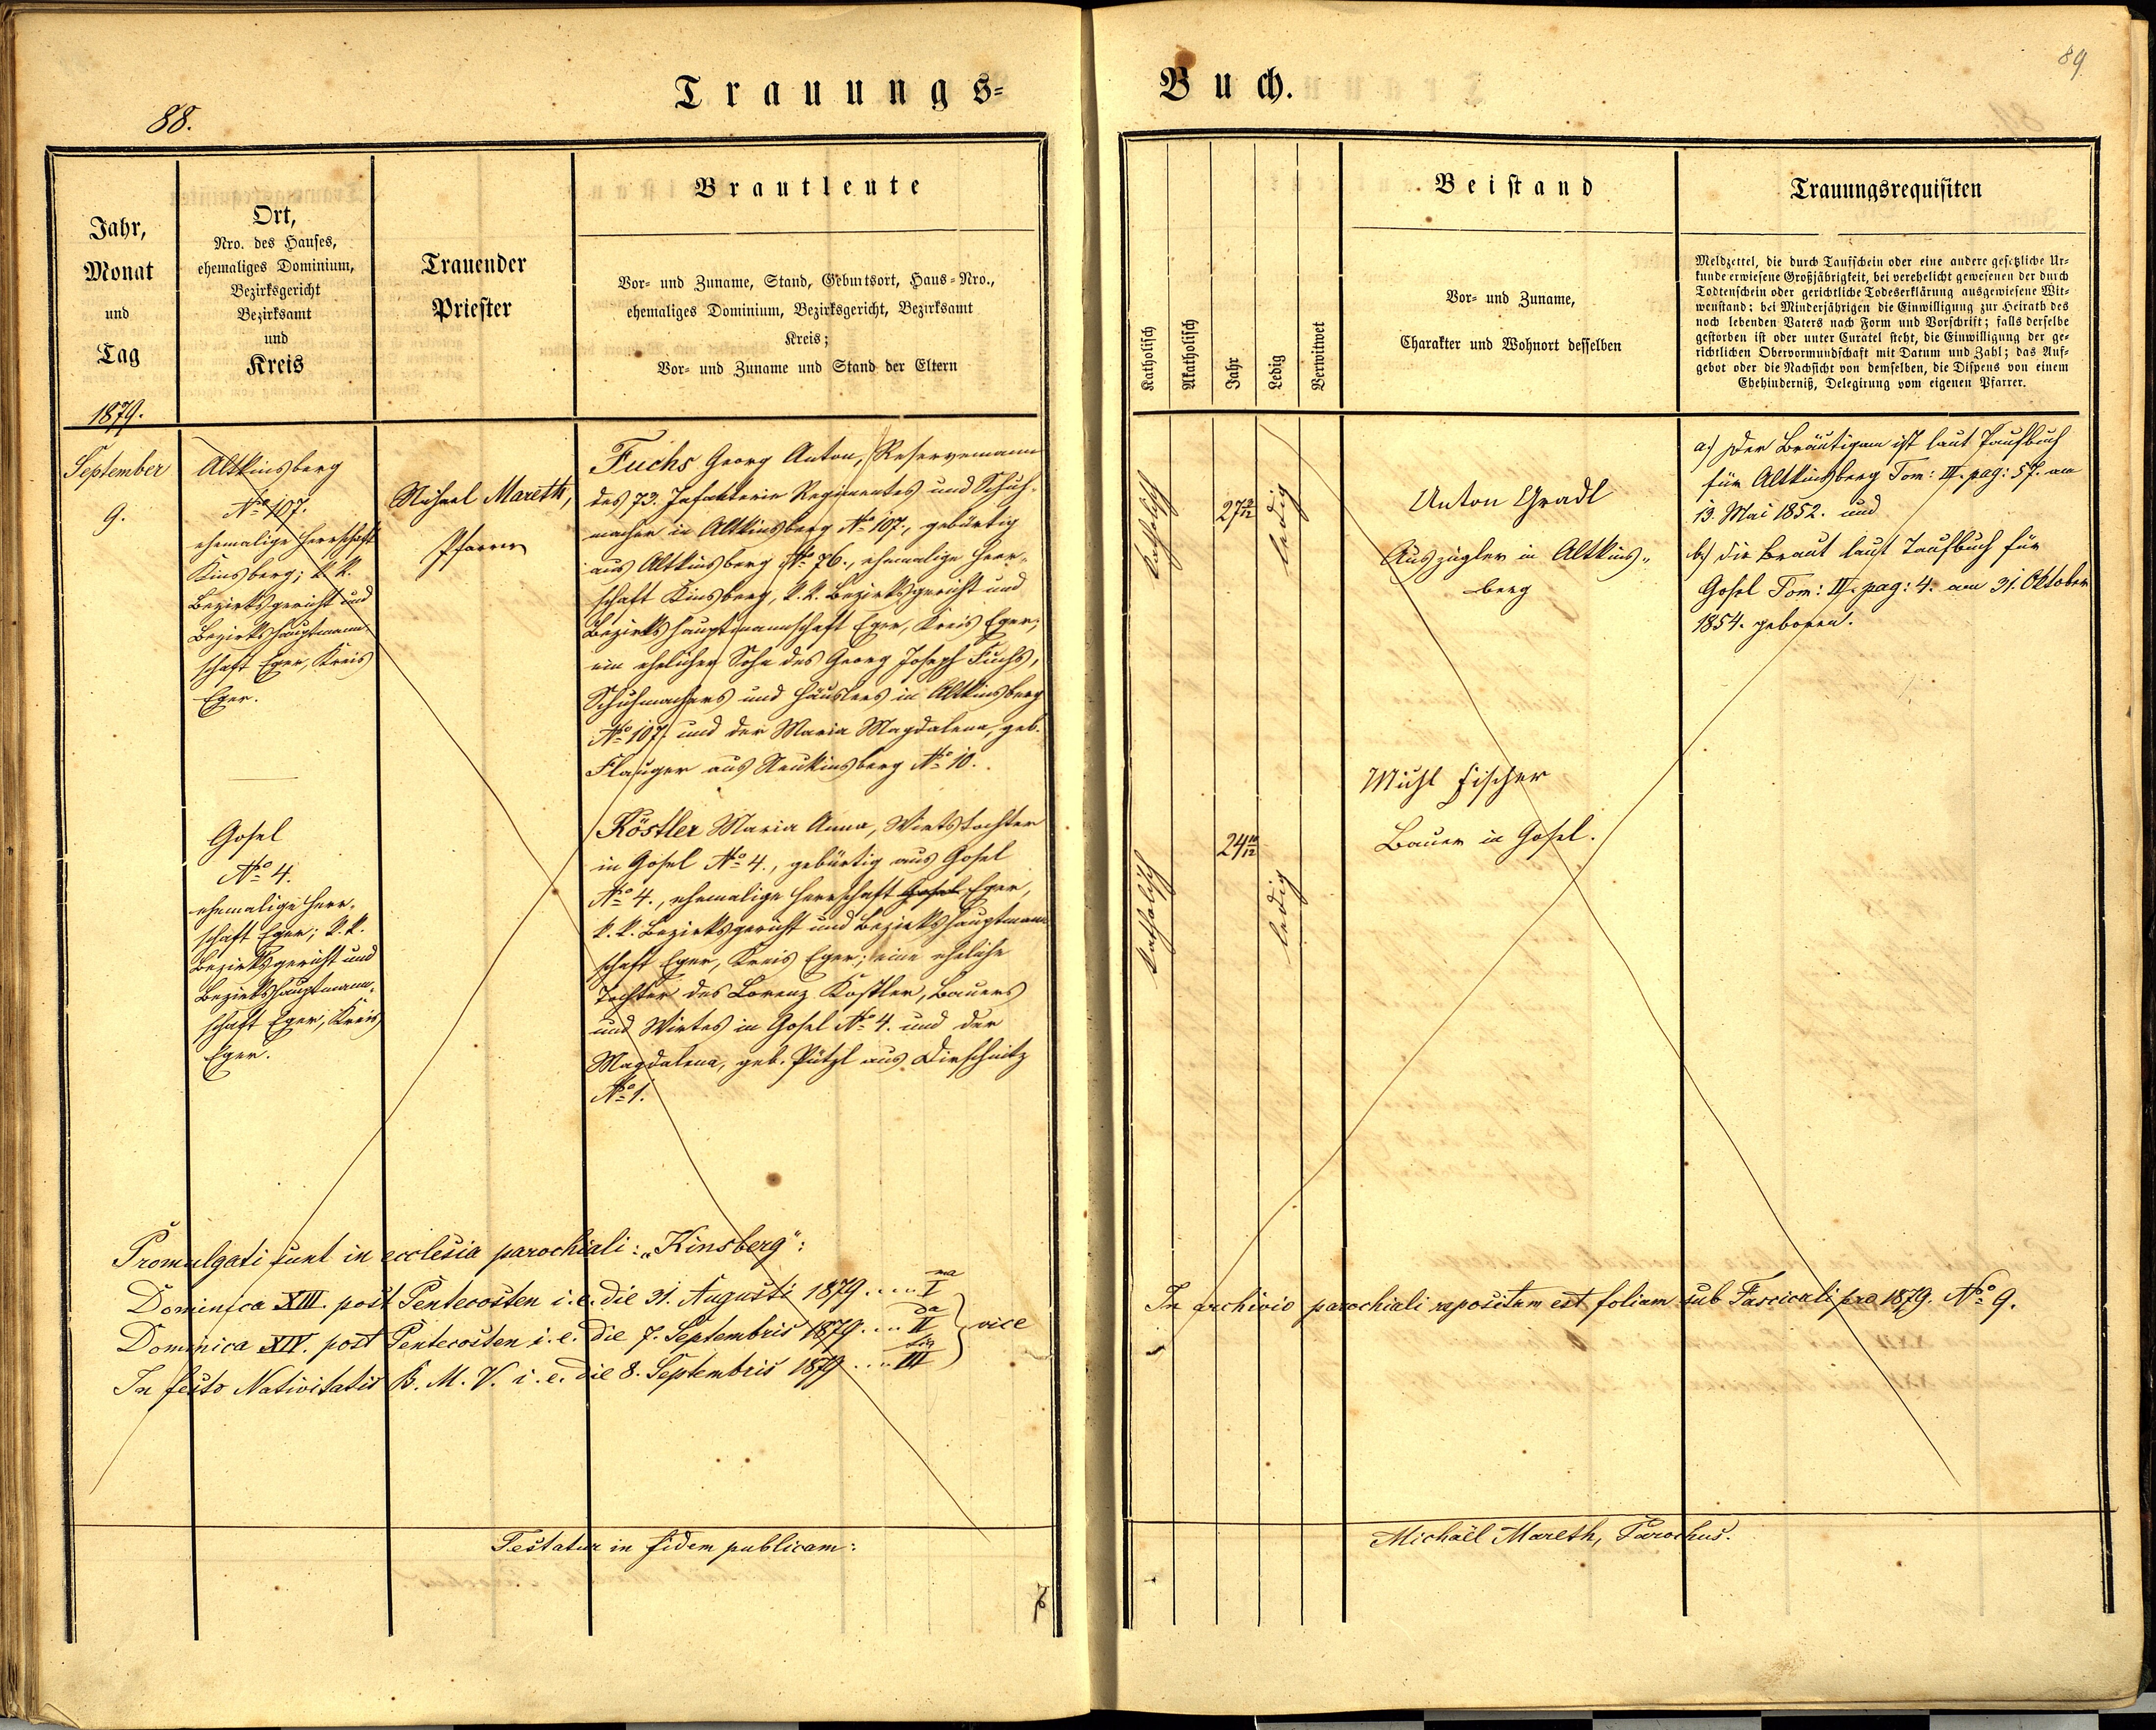 88.
Trauungs=
Jahr,
Monat
und
Tag
Ort,
Nro. des Hauses,
ehemaliges Dominium,
Bezirksgericht
Bezirksamt
und
Kreis
Trauender
Priester
Brautleute
Vor- und Zuname, Stand, Geburtsort, Haus-Nro.,
ehemaliges Dominium, Bezirksgericht, Bezirksamt
Kreis;
Vor- und Zuname und Stand der Eltern
1879.
September
9.
Altkinsberg
No 107.
ehemalige Herrschaft
Kinsberg; k. k.
Bezirksgericht und
Bezirkshauptmann-
schaft Eger, Kreis
Eger.
Michael Mareth,
Pfarrer
Fuchs Georg Anton, Reservemann
des 73. Infanterie Regimentes und Schuh-
macher in Altkinsberg No 107., gebürtig
aus Altkinsberg No 76., ehemalige Herr-
schaft Kinsberg, k. k. Bezirksgericht und
Bezirkshauptmannschaft Eger, Kreis Eger;
ein ehelicher Sohn des Georg Joseph Fuchs,
Schuhmachers und Häuslers in Altkinsberg
No 107 und der Maria Magdalena, geb.
Flauger aus Neukinsberg No 10.
Gosel
No 4.
ehemalige Herr-
schaft Eger; k. k.
Bezirksgericht und
Bezirkshauptmann-
schaft Eger, Kreis
Eger.
Köstler Maria Anna, Wirtstochter
in Gosel No 4., gebürtig aus Gosel
No 4., ehemalige Herrschaft Gosel Eger,
k. k. Bezirksgericht und Bezirkshauptmann
schaft Eger, Kreis Eger; eine eheliche
Tochter des Lorenz Köstler, Bauers
und Wirtes in Gosel No 4. und der
Magdalena, geb. Pützl aus Dirschnitz
No 1.
Promulgati sunt in ecclesia parochiali: „Kinsberg“:
Dominica XIII. post Pentecosten i. e. die 31. Augusti 1879 ..... I ma
Dominica XIV. post Pentecosten i. e. die 7. Septembris 1879 .... II da vice
In festo Nativitatis B. M. V. i. e. die 8. Septembris 1879 .... III tia
Testatur in fidem publicam:
89
Buch.
Katholisch
Akatholisch
Jahr
Ledig
Verwitwet
Beistand
Vor- und Zuname,
Charakter und Wohnort desselben
Trauungsrequisiten
Meldzettel, die durch Taufschein oder eine andere gesetzliche Ur-
kunde erwiesene Großjährigkeit, bei verehelicht gewesenen der durch
Todtenschein oder gerichtliche Todeserklärung ausgewiesene Wit-
wenstand; bei Minderjährigen die Einwilligung zur Heirath des
noch lebenden Vaters nach Form und Vorschrift; falls derselbe
gestorben ist oder unter Curatel steht, die Einwilligung der ge-
richtlichen Obervormundschaft mit Datum und Zahl; das Auf-
gebot oder die Nachsicht von demselben, die Dispens von einem
Ehehinderniß, Delegirung vom eigenen Pfarrer.
katholisch
27
ledig
Anton Gradl
Auszügler in Altkins„
berg
a) Der Bräutigam ist laut Taufbuch
für Altkinsberg Tom: III. pag: 57. am
13. Mai 1852. und
b) die Braut laut Taufbuch für
Gosel Tom: II. pag: 4. am 31. Oktober
1854. geboren.
katholisch
24 10/12
ledig
Michl Fischer
Bauer in Gosel.
In archivio parochiali repositum est folium sub Fascicali pro 1879. No 9.
Michaël Mareth, Parochus.